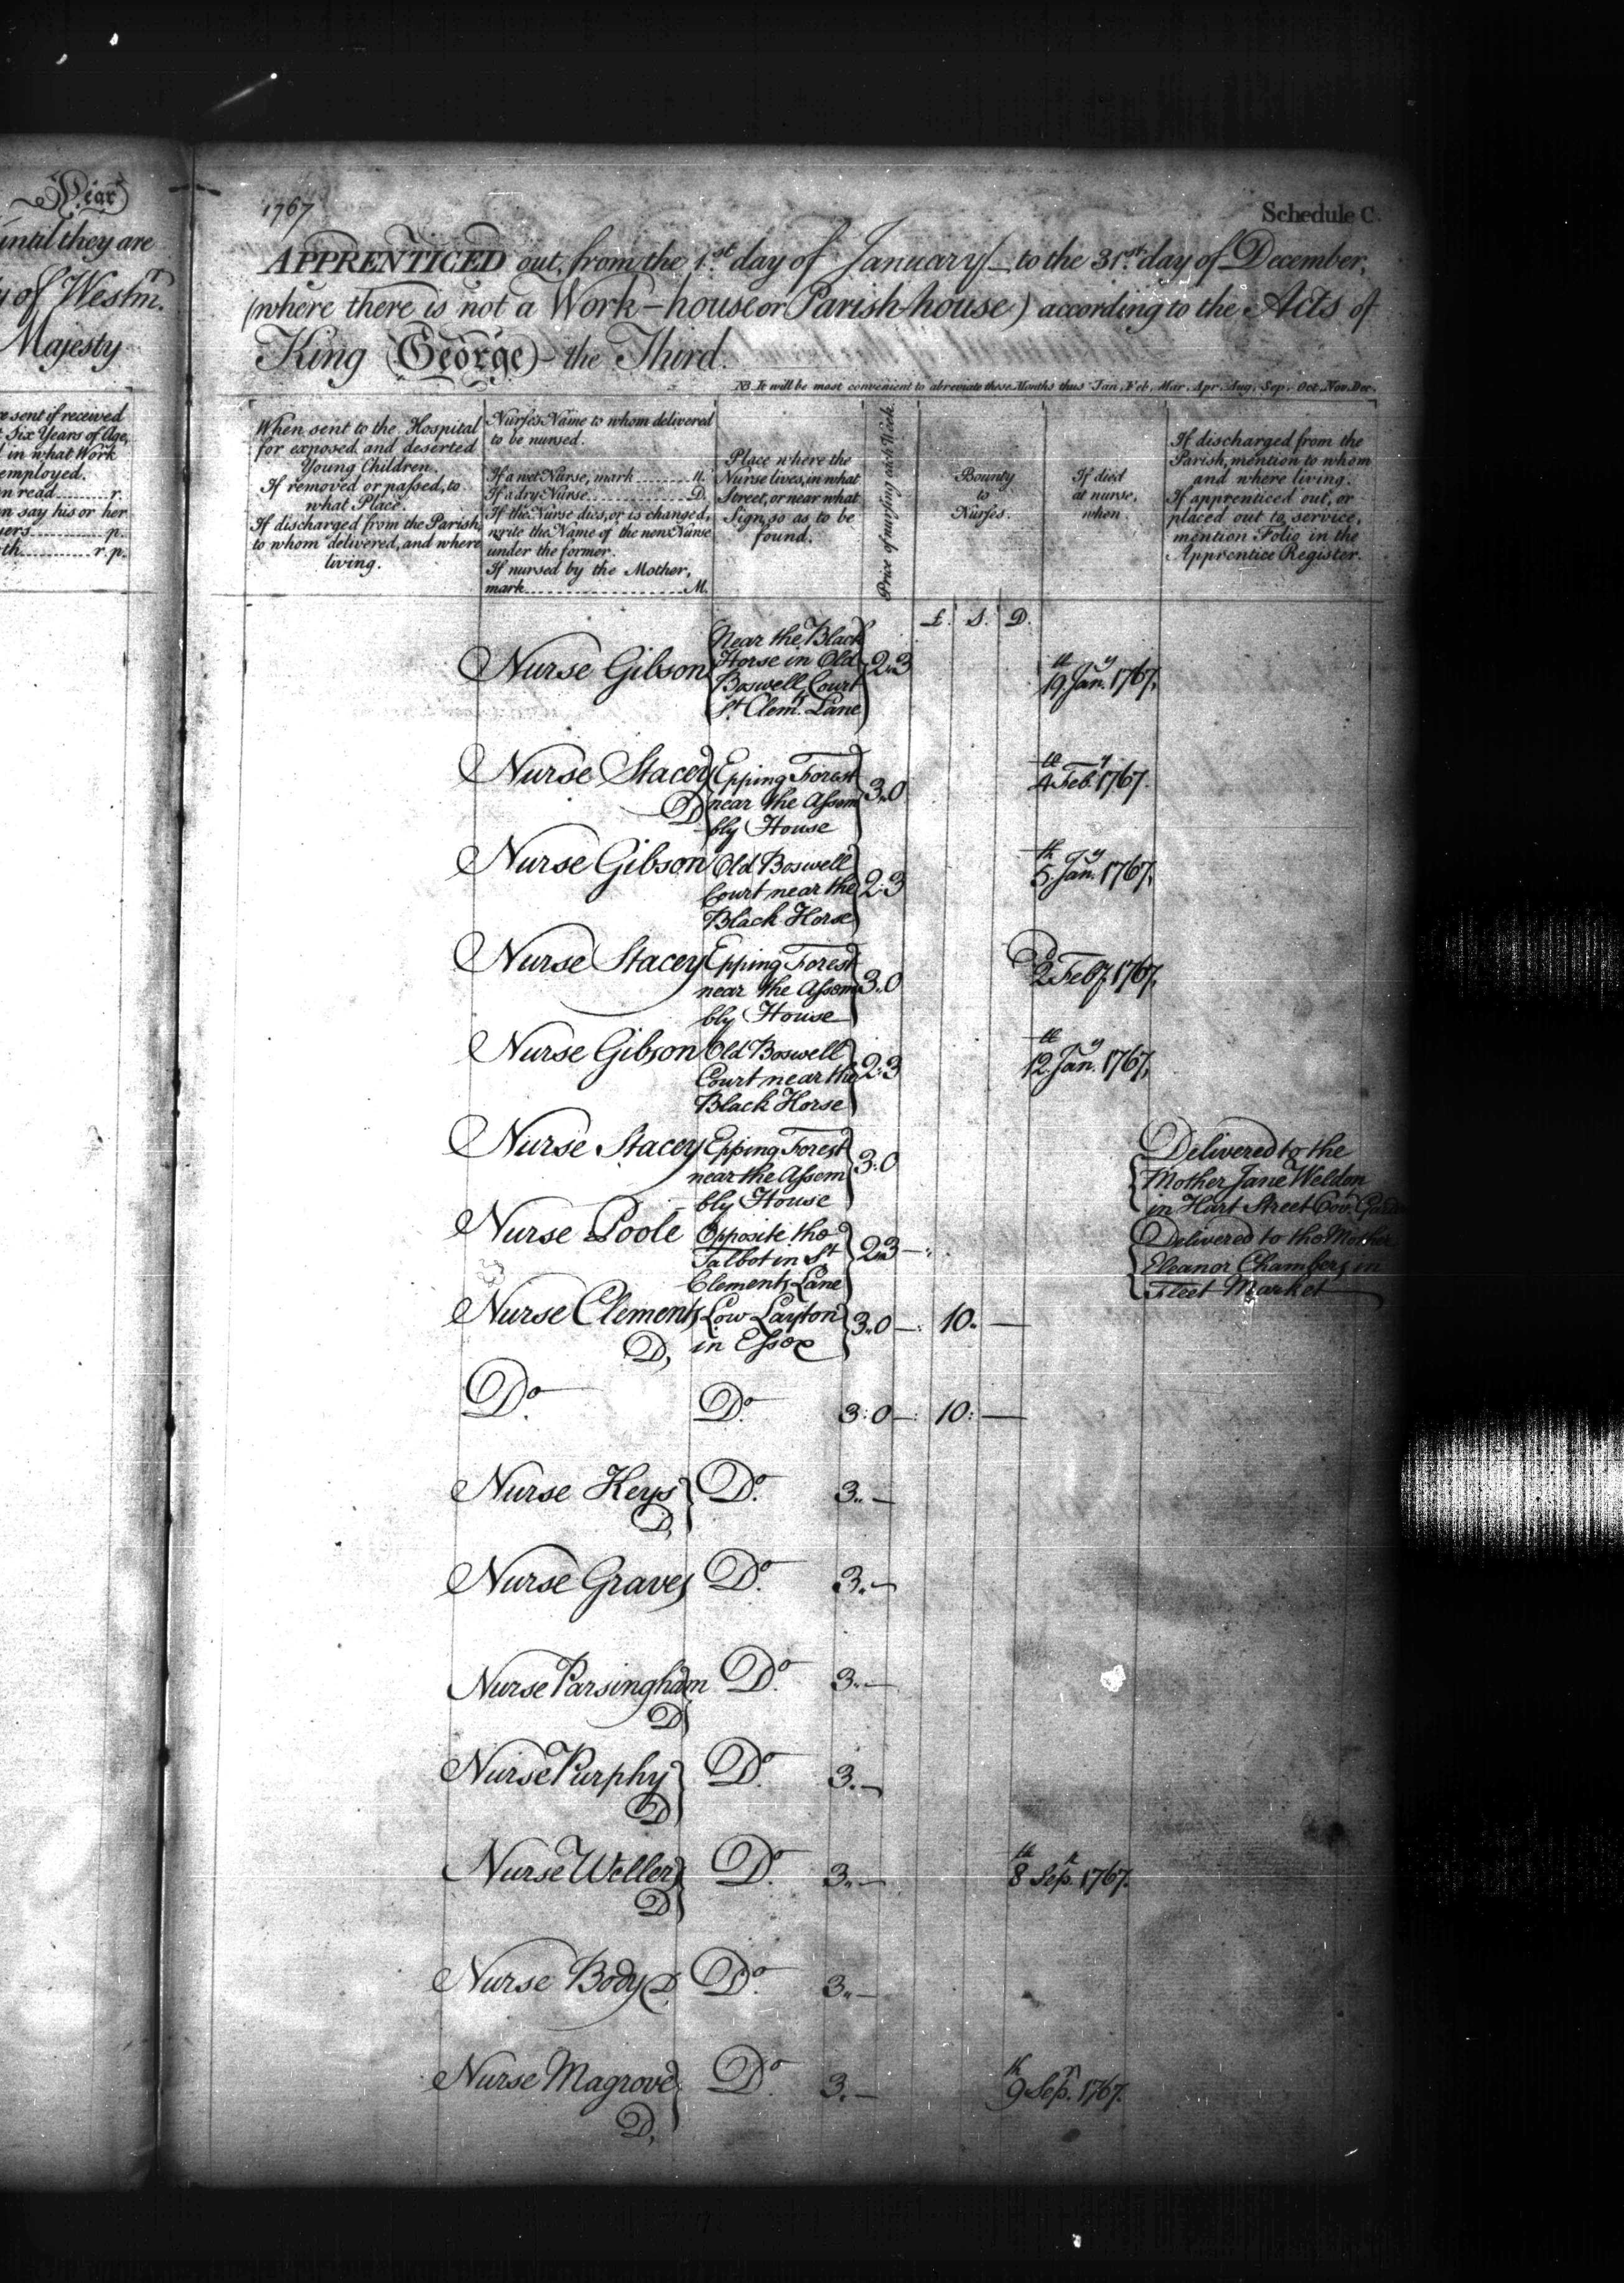 Year
until they are
y of Westm.r
Majesty
ce sent if received
Six Years of Age,
in what Work
employed.
n read ........ r.
n say his or her
yers ........ p.
th ........ r. p.
1767
Schedule C.
APPRENTICED out, from the 1.st day of January to the 31.st day of December,
(where there is not a Work-house or Parish house) according to the Acts of
King George the Third.
NB. It will be most convenient to abreviate these Months thus Jan. Feb. Mar. Apr. Aug. Sep. Oct. Nov. Dec.
When sent to the Hospital
for exposed and deserted
Young Children.
If removed or passed, to
what Place.
If discharged from the Parish,
to whom delivered, and where
living.
Nurse's Name to whom delivered
to be nursed.
If a wet Nurse, mark ........ N.
If a dry Nurse ........ D.
If the Nurse dies, or is changed,
write the Name of the new Nurse
under the former.
If nursed by the Mother,
mark ........ M.
Place where the
Nurse lives, in what
Street, or near what
Sign, so as to be
found.
Price of nursing each Week.
Bounty
to
Nurses.
If died
at nurse,
when.
If discharged from the
Parish, mention to whom
and where living.
If apprenticed out, or
placed out to service,
mention Folio in the
Apprentice Register.
£. S. D.
Nurse Gibson
Near the Black
Horse in Old
Boswell Court
St. Clemt. Lane
2..3
19th Jany. 1767.
Nurse Stacey
D
Epping Forest
near the Assem
bly House
3..0
4th Feby. 1767.
Nurse Gibson
Old Boswell
Court near the
Black Horse
2:3
5th Jany. 1767.
Nurse Stacey
Epping Forest
near the Assem
bly House
3..0
2d Feby. 1767.
Nurse Gibson
Old Boswell
Court near the
Black Horse
2:3
12th Jany. 1767.
Nurse Stacey
Epping Forest
near the Assem
bly House
3:0
Delivered to the
Mother Jane Weldon
in Hart Street Cov. Garden
Nurse Poole
Opposite the
Talbot in St
Clements Lane
2..3 —
Delivered to the Mother
Eleanor Chambers in
Fleet Market
Nurse Clements
D,
Low Layton
in Essex
3..0 —: 10. —
Do Do 3:0 —: 10: —
Nurse Keys
D,
Do. 3.. —
Nurse Graves Do. 3.. —
Nurse Parsingham
D
Do. 3.. —
Nurse Purphy
D
Do. 3. —
Nurse Weller
D
Do. 3.. —
8th Sept. 1767.
Nurse Body D Do. 3.. —
Nurse Magrove
D,
Do. 3. —
9th Sepr. 1767.